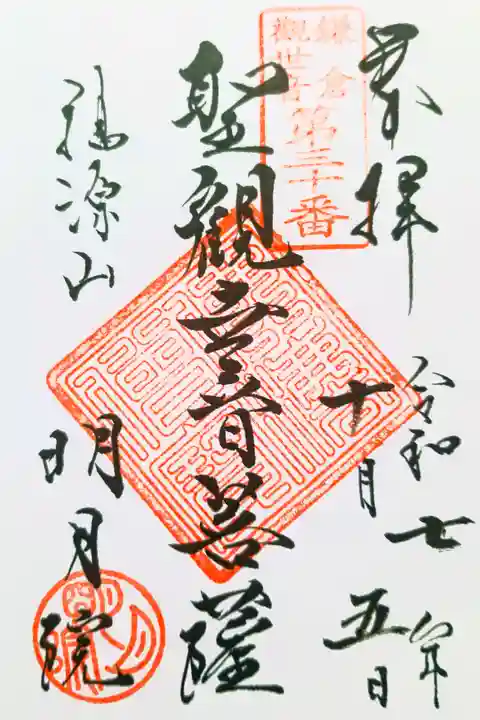 奉拝
令和七年
十月五日
鎌倉
觀世音
第三十番
聖観世音菩薩
福源山
明月院